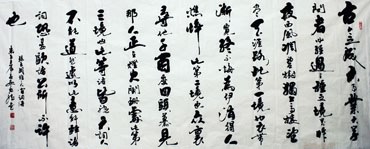 古今之成大事業大學
問者必經過三種之境界昨
夜西風凋碧樹獨上高樓望
盡天涯路此第一境也衣帶
漸寬終不悔為伊消得人
憔悴此第二境也眾裏
尋他千百度回頭驀見
那人正在燈火闌珊處此第
三境也此等語皆非大詞人
不能道然遽以此意解釋諸
詞恐為晏歐諸公所不許
也